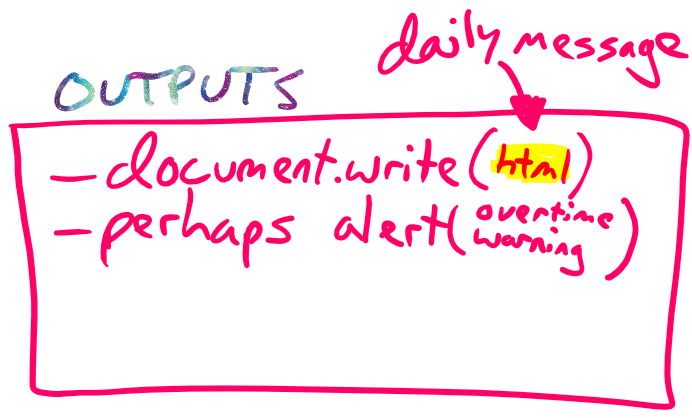 daily message
OUTPUTS
- document.write(html)
- perhaps alert(overtime
warning)